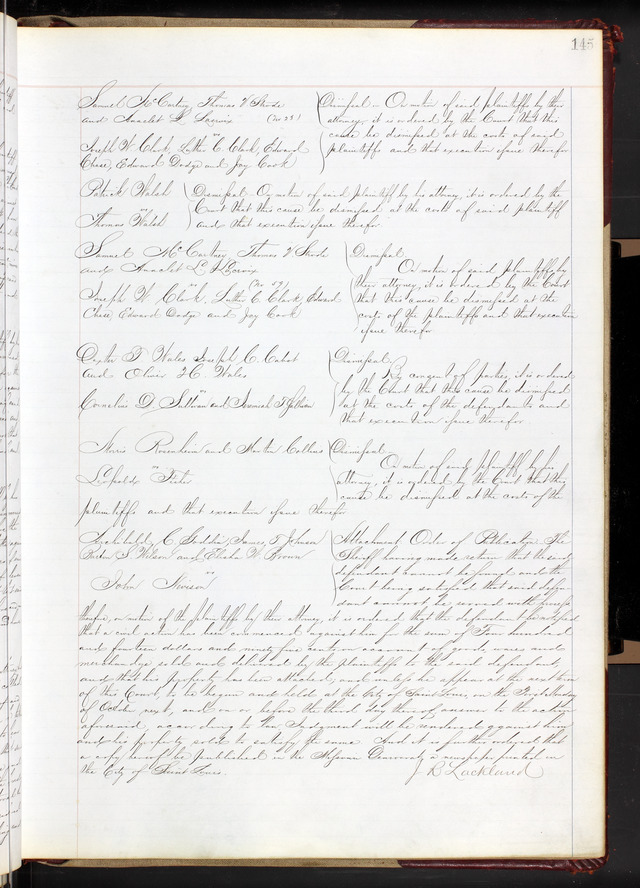 145
Samuel McCartney, Thomas V Strode } Dismissed — On motion of said plaintiffs by their
and Anaclet L Lacroix } attorney, it is ordered by the Court that this
vs } cause be dismissed at the costs of said
Joseph W. Clark, Luther C Clark, Edward } plaintiffs and that execution issue therefor
Chase, Edward Dodge and Jay Cook
Patrick Walsh } Dismissed. On motion of said plaintiff by his attorney, it is ordered by the
vs } Court that this cause be dismissed at the costs of said plaintiff
Thomas Walsh } and that execution issue therefor.
Samuel McCartney Thomas V Strode } Dismissed
and Anaclet L Lacroix } On motion of said plaintiffs by
vs } their attorney, it is ordered by the Court
Joseph W. Clark, Luther C Clark, Edward } that this cause be dismissed at the
Chase, Edward Dodge and Jay Cook } costs of the plaintiffs and that execution
issue therefor
T Wales Joseph C. Cabot } Dismissed
and Oliver Wales } By consent of parties, it is ordered
vs } by the Court that this cause be dismissed
Cornelius D. Sullivan and Jeremiah Sullivan } at the costs of the defendants and
that execution issue therefor
Rosenheim and } Dismissed
vs } On motion of said plaintiff by his
Leopold } attorney, it is ordered by the Court that this
cause be dismissed at the costs of the
plaintiffs and that execution issue therefor
Archibald C James T Johnson } Attachment Order of Publication The
S Wilson and Elisha W Brown } Sheriff having made return that the said
vs } defendant cannot be found and the
John } Court being satisfied that said defen-
dant cannot be served with process
therefor, on motion of the plaintiffs by their attorney, it is ordered that the defendant be notified
that a civil action has been commenced against him for the sum of Four hundred
and fourteen dollars and ninety five cents on account of goods, wares and
merchandize sold and delivered by the plaintiffs to the said defendant,
and that his property has been attached, and unless he appear at the next term
of this Court, to be begun and held at the City of Saint Louis, on the first Monday
of October next, and on or before the third day thereof answer to the action
aforesaid, according to law Judgment will be rendered against him
and his property sold to satisfy the same. And it is further ordered that
a copy hereof be published in the Missouri Democrat, a newspaper printed in
the City of Saint Louis. J R Lackland